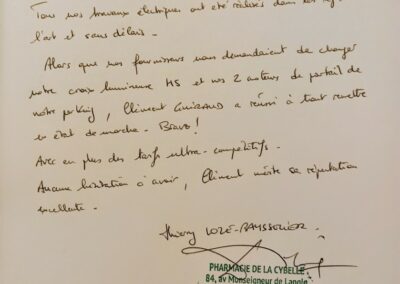 Tous nos travaux électriques ont été réalisés dans les
l'art et sans délais.
Alors que nos fournisseurs nous demandaient de changer
notre croix lumineuse HS et nos 2 moteurs du portail de
notre parking, Clément GUIRAUD a réussi à tout remettre
en état de marche. Bravo!
Avec en plus des tarifs ultra-compétitifs.
Aucune hésitation à avoir, Clément mérite sa réputation
excellente.
Thierry
PHARMACIE DE LA CYBELLE
84, av Monseigneur de